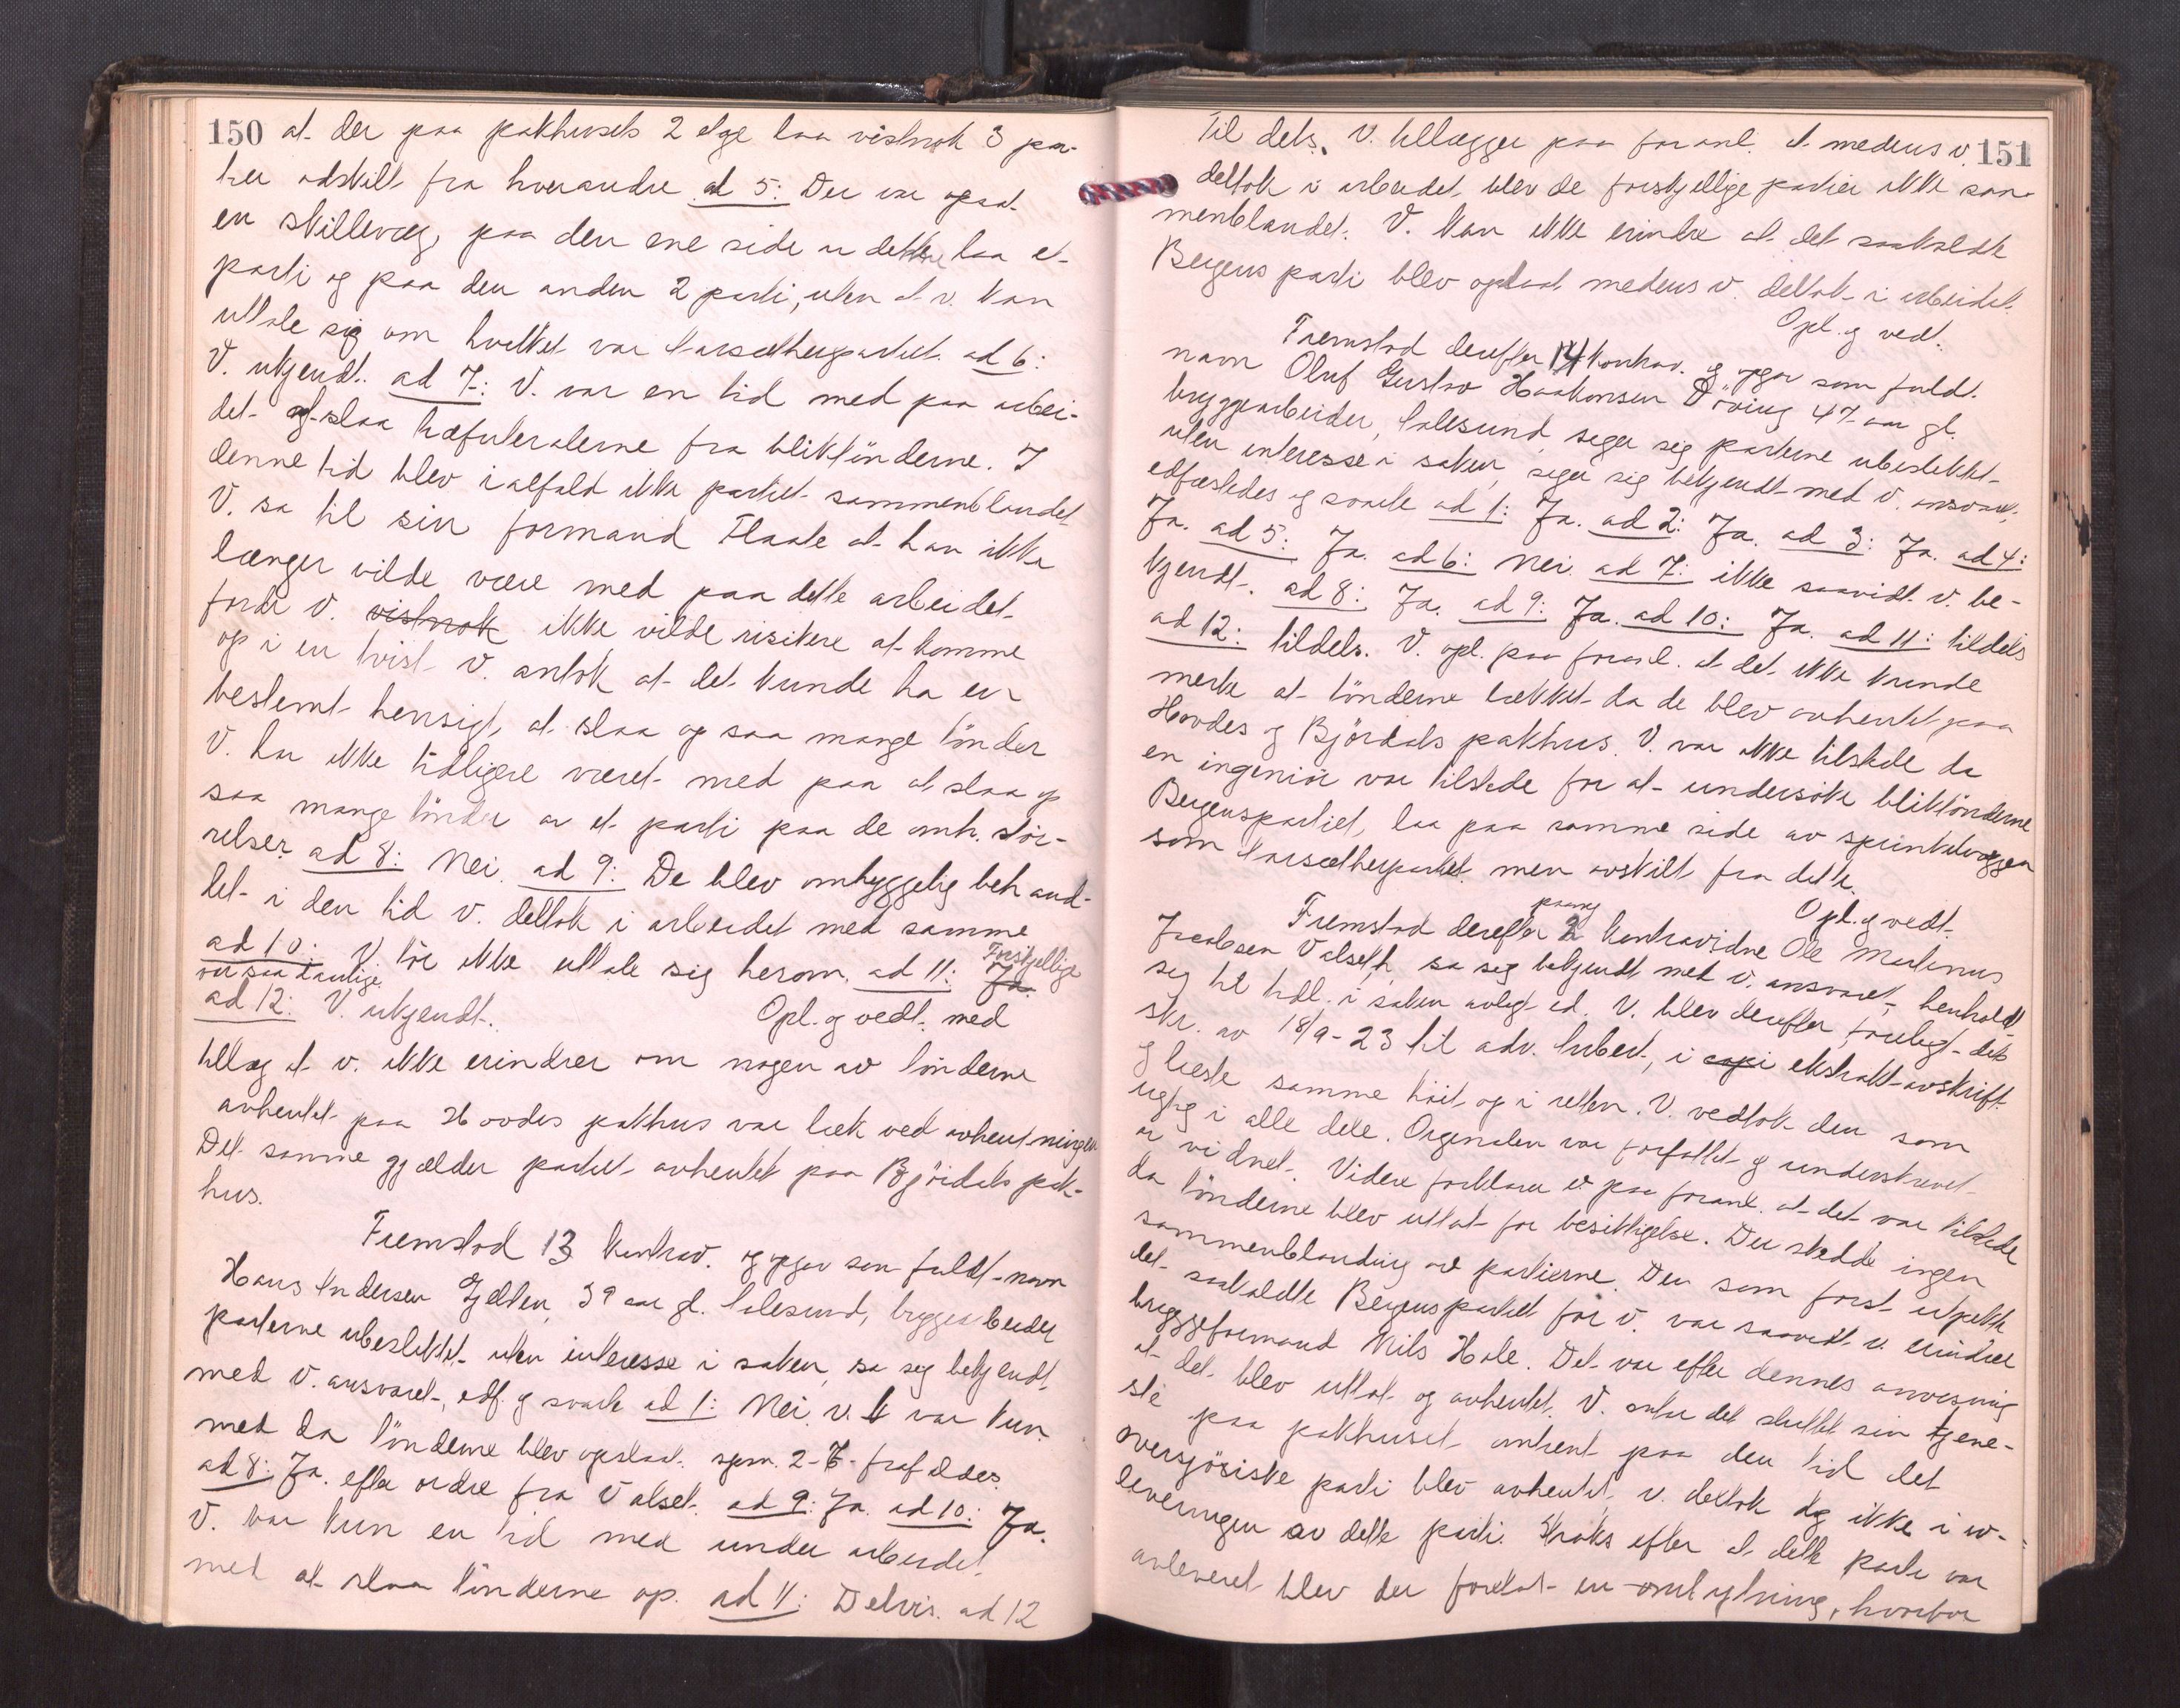 150 at der paa pakhusets 2 etge laa vistnok 3 par-
tier adskilt fra hverandre ad 5: Der var opsat
en skillevæg, paa den ene side av dette laa et
parti og paa den anden 2 parti, uten at v. kan
uttale sig om hvilket var Varsætherpartiet. ad 6:
V. ukjendt. ad 7: V. var en tid med paa arbei-
det at slaa træfuteralerne fra bliktönderne. I
denne tid blev ialfald ikke partiet sammenblandet
V. sa til sin formand Flaate at han ikke
længer vilde være med paa dette arbeidet
fordi v. vistnok ikke vilde risikere at komme
op i en tvist. V. antok at det kunde ha en
bestemt hensigt, at slaa op saa mange tönder
V. har ikke tidligere været med paa at slaa op
saa mange tönder av et parti paa de omh. stör-
relser. ad 8: Nei. ad 9: De blev omhyggelig behand-
let i den tid v. deltok i arbeidet med samme
ad 10: V. tör ikke uttale sig herom. ad 11: Ja. Forskjellige
var saa daarlige.
ad 12: V. ukjendt. Opl. og vedt. med
tillæg at v. ikke erindrer om nogen av tönderne
avhentet paa Hovdes pakhus var læk ved avhentningen
Det samme gjælder partiet avhentet paa Björdals pak-
hus.
Fremstod 13 kontrav. og opgav som fuldt navn
Hans Andersen Gjelten, 39 aar gl. Aalesund, bryggearbeider
parterne ubeslektet uten interesse i saken, sa seg bekjendt
med v. ansvaret, edf. og svarte ad 1: Nei, v. var kun
med da tönderne blev opslaat. spm. 2-7 frafaldes.
ad 8: Ja. efter ordre fra Valset. ad 9: Ja. ad 10: Ja.
V. var kun en tid med under arbeidet
med at slaa tönderne op. ad 11: Delvis. ad 12
Til dels. V. tillægger paa foranl. at medens v. 151
deltok i arbeidet blev de forskjellige partier ikke sam-
menblandet. V. kan ikke erindre at det saakaldte
Bergens parti blev opslaat medens v. deltok i arbeidet.
Opl. og vedt.
Fremstod derefter 14 kontrav. og opgav som fuldt
navn Oluf Gustav Haakonsen Döving 47 aar gl.
bryggearbeider, Aalesund, siger sig parterne ubeslektet
uten interesse i saken, siger sig bekjendt med v. ansvaret,
edfæstedes og svarte ad 1: Ja. ad 2: Ja. ad 3: Ja. ad 4:
Ja. ad 5: Ja. ad 6: Nei. ad 7: ikke saavidt v. be-
kjendt. ad 8: Ja. ad 9: Ja. ad 10: Ja. ad 11: tildels
ad 12: tildels. V. opl. paa foranl. at det ikke kunde
merkes at tönderne lækket da de blev avhentet paa
Hovdes og Björdals pakhus. V. var ikke tilstede da
en ingeniör var tilstede for at undersöke bliktönderne
Bergenspartiet, laa paa samme side av sprinkelvæggen
som Varsætherpartiet men avskilt fra dette.
Opl. og vedt.
Fremstod derefter paany 2 kontravidne Ole Martinus
Jacobsen Valseth, sa seg bekjendt med v. ansvaret, henholdt
seg til tidl. i saken avlagt ed. V. blev derefter forelagt det
skr. av 18/9-23 til adv. Aubert, i copi ekstrakt-avskrift
og læste samme höit op i retten. V. vedtok den som
rigtig i alle dele. Orginalen var forfattet og underskrevet
av vidnet. Videre forklarer v. paa foranl. at det var tilstede
da tönderne blev uttat for besiktigelse. Der skedde ingen
sammenblanding av partierne. Den som först utpekte
det saakaldte Bergenspartiet for v. var saavidt v. erindrer
bryggeformand Nils Hole. Det var efter dennes anvisning
at det blev uttat og avhentet. V. antar det sluttet sin tjene-
ste paa pakhuset omtrent paa den tid det
oversjöiske parti blev avhentet, v. deltok dog ikke i av-
leveringen av dette parti. Straks efter at dette parti var
avleveret blev der foretat en omflytning, hvorfor